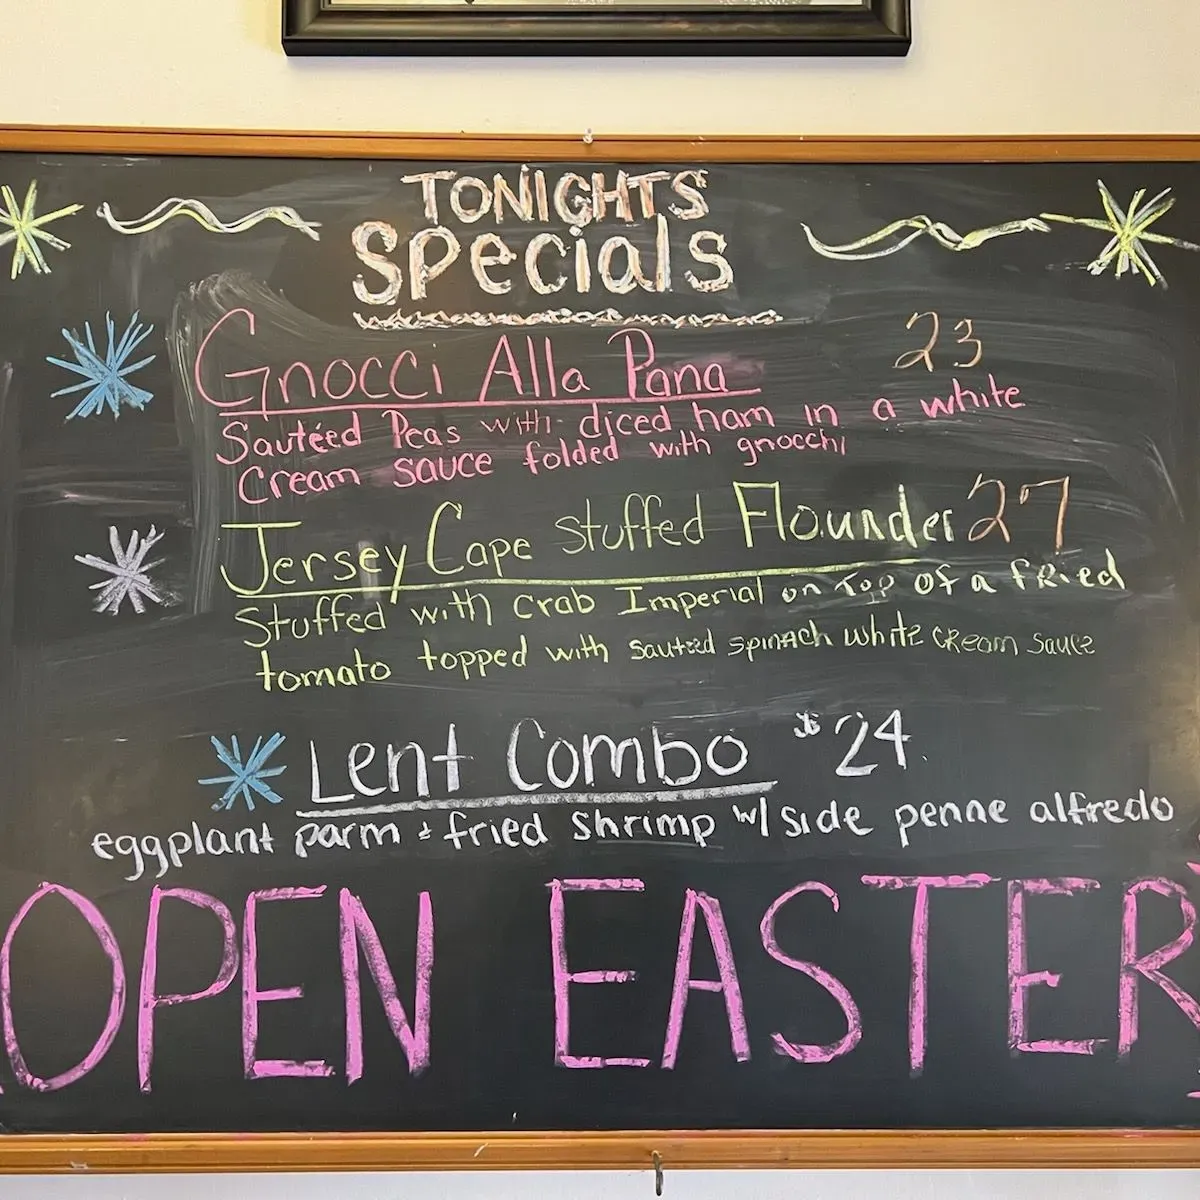 TONIGHTS
Specials
Gnocci Alla Pana 23
Sauteéd Peas with diced ham in a white
Cream sauce folded with gnocchi
Jersey Cape stuffed Flounder 27
Stuffed with crab Imperial on Top of a fried
tomato topped with sauteed spinach white cream sauce
Lent Combo $24
eggplant parm + fried shrimp w/ side penne alfredo
OPEN EASTER